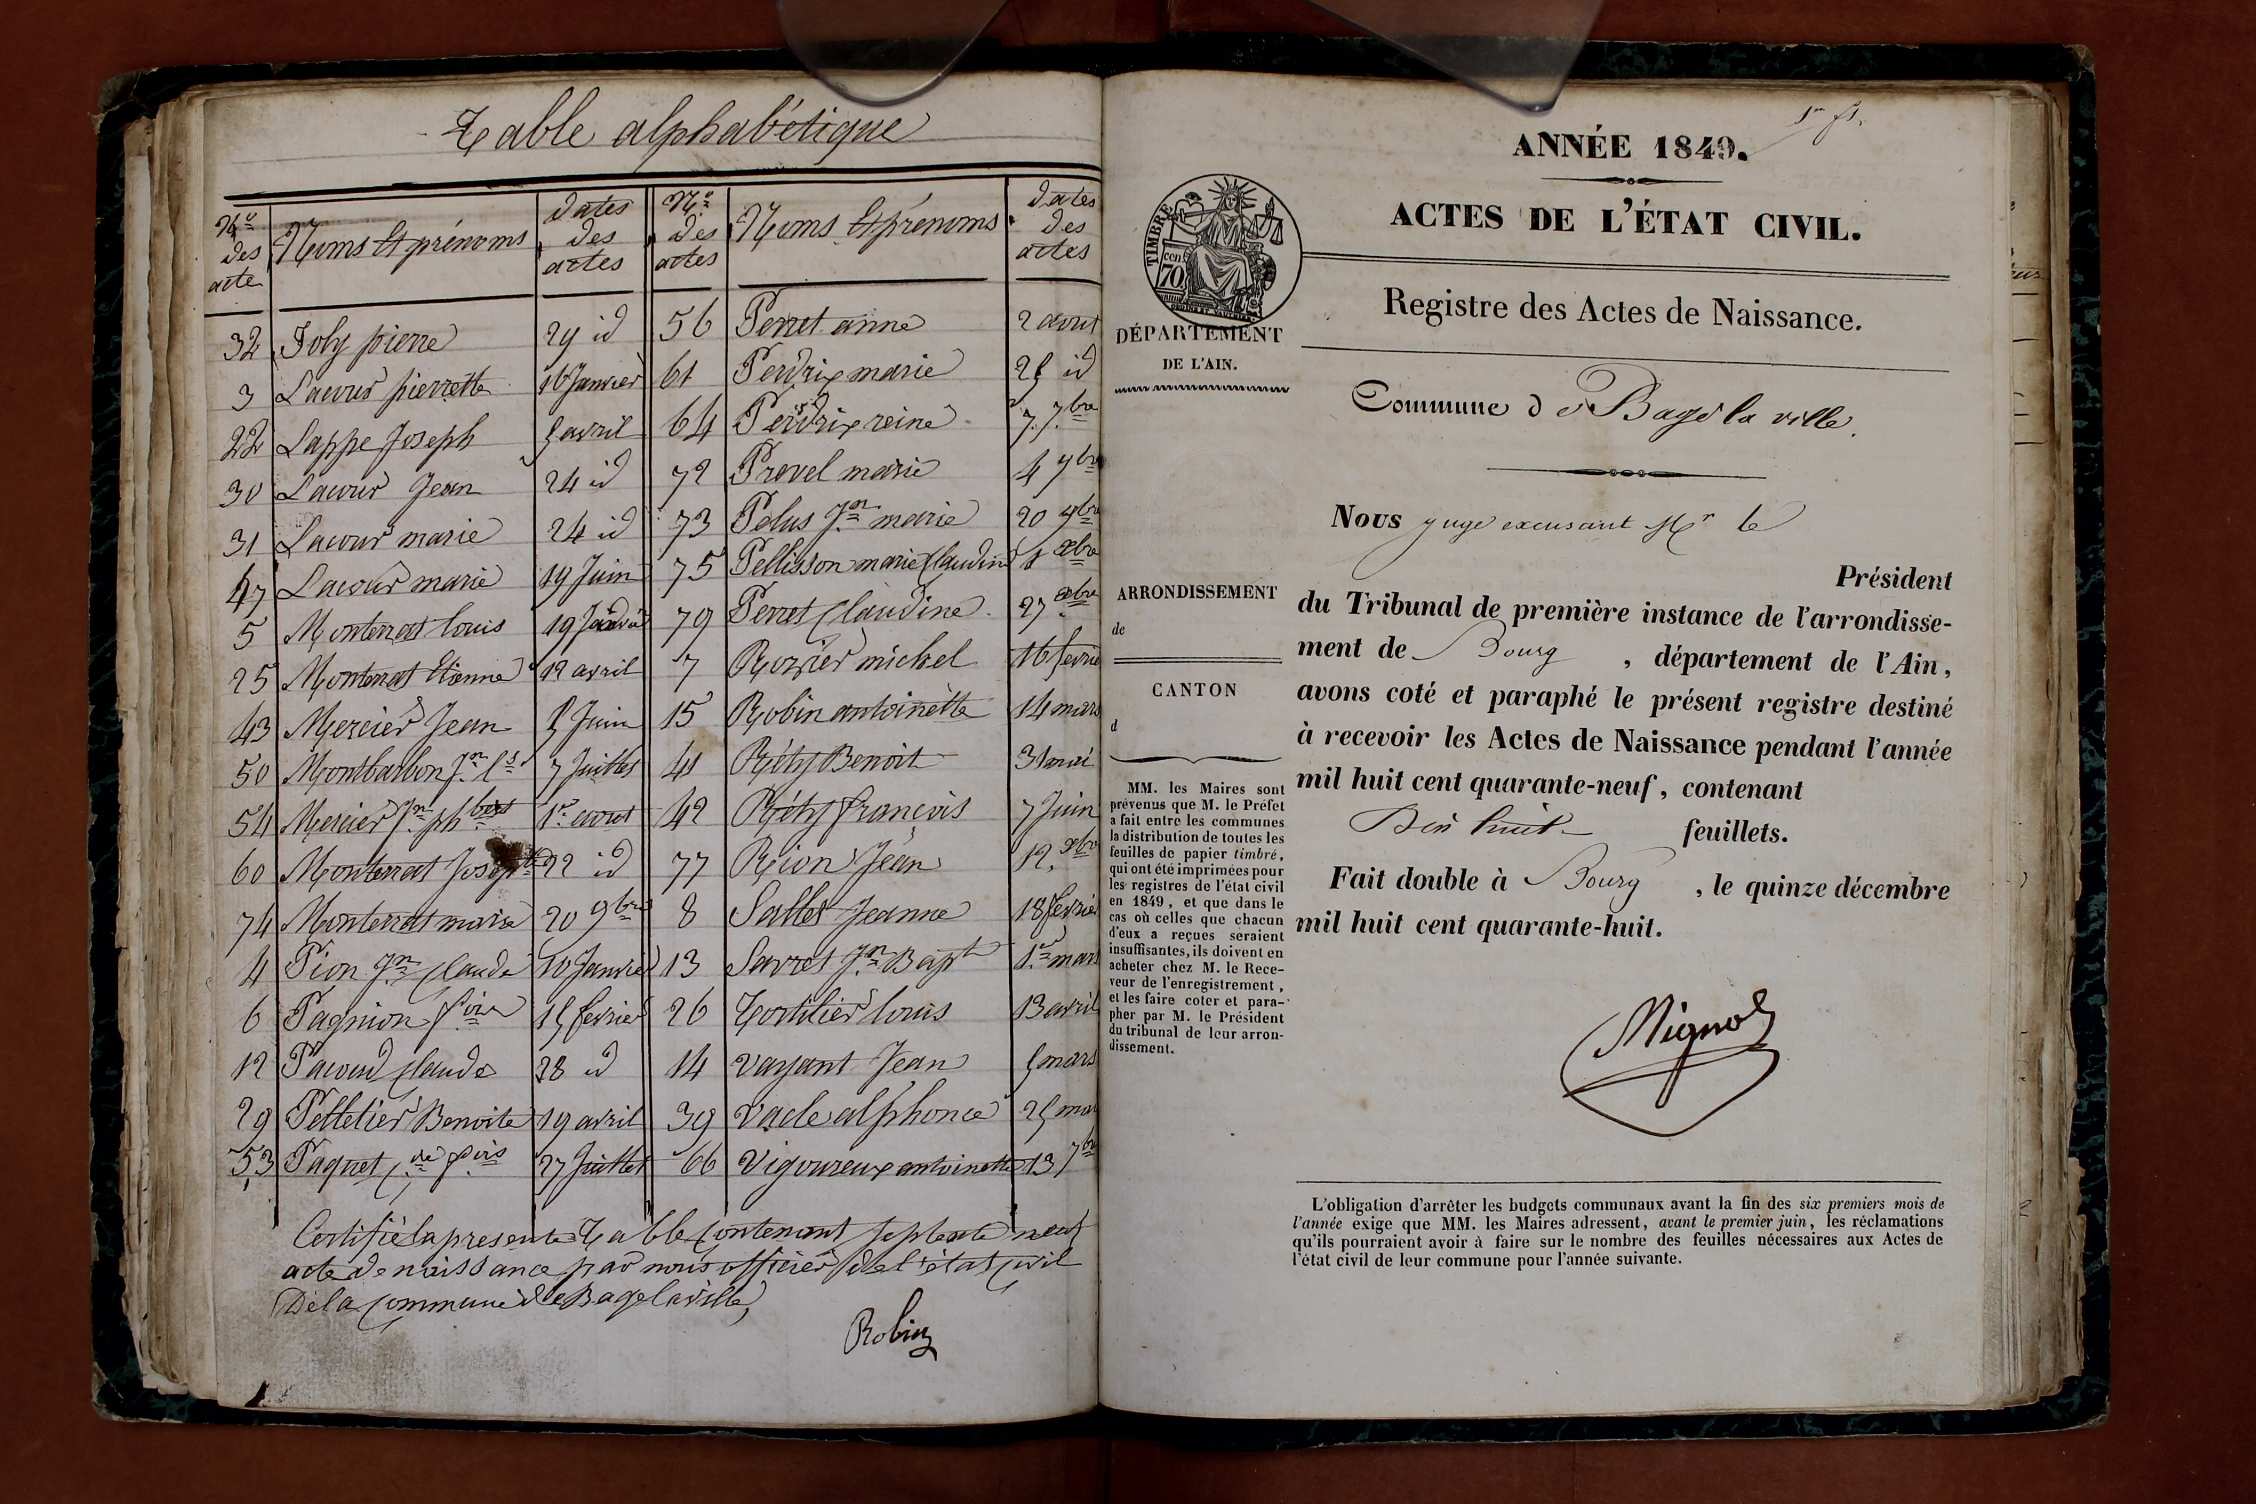 Table alphabétique
Nos des acte
Noms et prénoms
dates des actes
Nos des actes
Noms et prénoms
dates des actes
32 Joly pierre 29 id
3 Lacour pierrette 16 Janvier
22 Lappe Joseph 5 avril
30 Lacour Jean 24 id
31 Lacour marie 24 id
47 Lacour marie 19 Juin
5 Montenat louis 19 Janvier
25 Montenat Etienne 12 avril
43 Mercier Jean 8 Juin
50 Montbarbon Jn Ls 7 Juillet
54 Mercier Jn phbert 1er aout
60 Montenat Joseph 22 id
74 Montenat marie 20 9bre
4 Pion Jn Claude 10 Janvier
6 Pagnion fois 15 fevrier
12 Pacoud Claude 28 id
29 Pelletier Benoite 19 avril
53 Paquet Cde fois 27 Juillet
56 Perret anne 2 aout
61 Perdrix marie 25 id
64 Perdrix reine 7 7bre
72 Provel marie 4 9bre
73 Polus Jn marie 20 9bre
75 Pellisson marie Claudine 1 xbre
79 Perret Claudine 27 xbre
7 Rozier michel 16 fevrie
15 Robin antoinette 14 mars
41 Réty Benoit 31 mai
42 Réty françois 7 Juin
77 Rion Jean 12 xbre
8 Sallet Jeanne 18 fevrier
13 Savret Jn Bapt 1er mars
26 Tortilier louis 13 avril
14 Vayant Jean 5 mars
39 Vacle alphonce 25 mai
66 Vigoureux antoinette 13 7bre
Certifié la presente Table Contenant septente neuf
acte de naissance par nous officier de l'état Civil
De la Commune de Bagé la ville
Robin
ANNÉE 1849.
ACTES DE L'ÉTAT CIVIL.
TIMBRE
cen. 70
DÉPARTEMENT
DE L'AIN.
Registre des Actes de Naissance.
Commune de Bagé la ville.
Nous juge excusant Mr le
Président
du Tribunal de première instance de l'arrondisse-
ment de Bourg, département de l'Ain,
avons coté et paraphé le présent registre destiné
à recevoir les Actes de Naissance pendant l'année
mil huit cent quarante-neuf, contenant
Dix huit feuillets.
Fait double à Bourg, le quinze décembre
mil huit cent quarante-huit.
Mignot
ARRONDISSEMENT
de
CANTON
d
MM. les Maires sont
prévenus que M. le Préfet
a fait entre les communes
la distribution de toutes les
feuilles de papier timbré,
qui ont été imprimées pour
les registres de l'état civil
en 1849, et que dans le
cas où celles que chacun
d'eux a reçues seraient
insuffisantes, ils doivent en
acheter chez M. le Rece-
veur de l'enregistrement,
et les faire coter et para-
pher par M. le Président
du tribunal de leur arron-
dissement.
L'obligation d'arrêter les budgets communaux avant la fin des six premiers mois de
l'année exige que MM. les Maires adressent, avant le premier juin, les réclamations
qu'ils pourraient avoir à faire sur le nombre des feuilles nécessaires aux Actes de
l'état civil de leur commune pour l'année suivante.